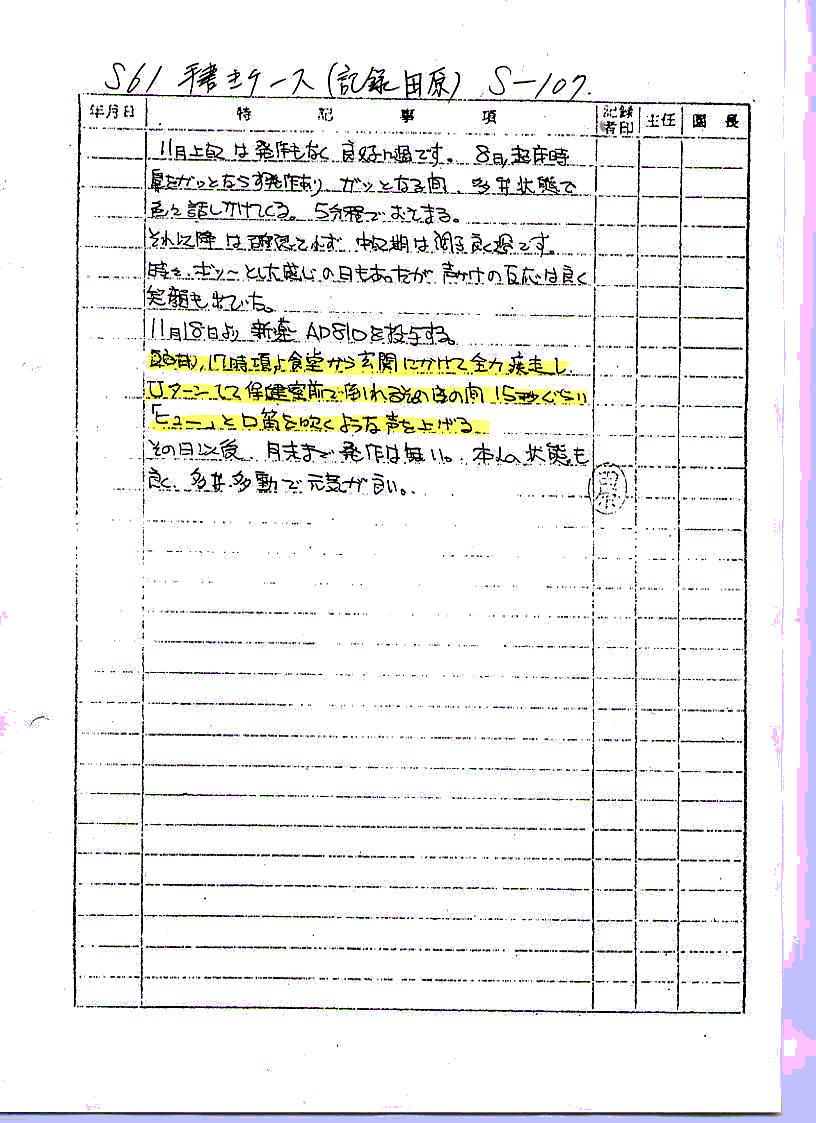 S61 手書きケース(記録田原) S-107.
年月日 特記事項 記録者印 主任 園長
11月上旬は発作もなく良好に過です。8日起床時
鼻をガッとならす発作あり ガッとなる間、多弁状態で
色々話しかけてくる。5分程でおさまる。
それ以降は確認されず 中期は調子良く過です。
時々、ボッーとした感じの日もあったが 声かけの反応は良く
笑顔も出ていた。
11月18日より 新薬 AD810を投与する。
17時頃より食堂から玄関にかけて全力疾走し
Uターンして保健室前で倒れる その間 15秒ぐらい
「ヒュー」と口笛を吹くような声を上げる
その日以後、月末まで発作は無い。本人の状態も
良く、多弁多動で元気が良い。
田原